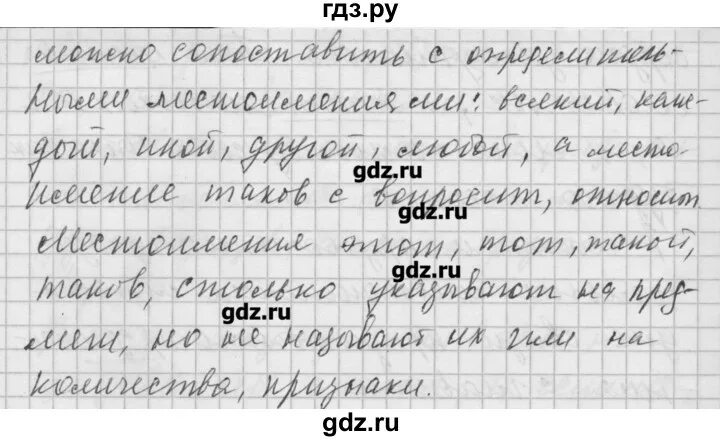 гдз.ру
можно сопоставить с определитель-
ными местоимениями: всякий, каж-
дый, иной, другой, любой, а место-
gdz.ru
имение таков с вопросит, относит.
gdz.ru
Местоимения этот, тот, такой,
gdz.ru
таков, столько указывают на пред-
gdz.ru
мет, но не называют их или на
количества, признаки.
gdz.ru